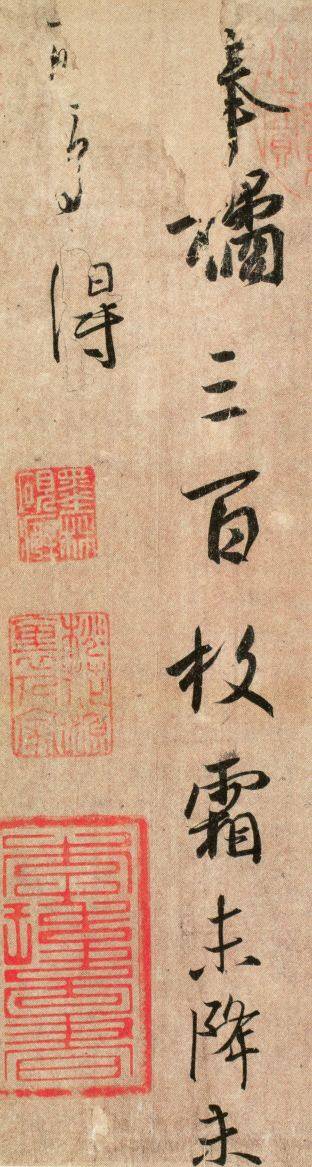 奉橘三百枚霜未降未
可多得